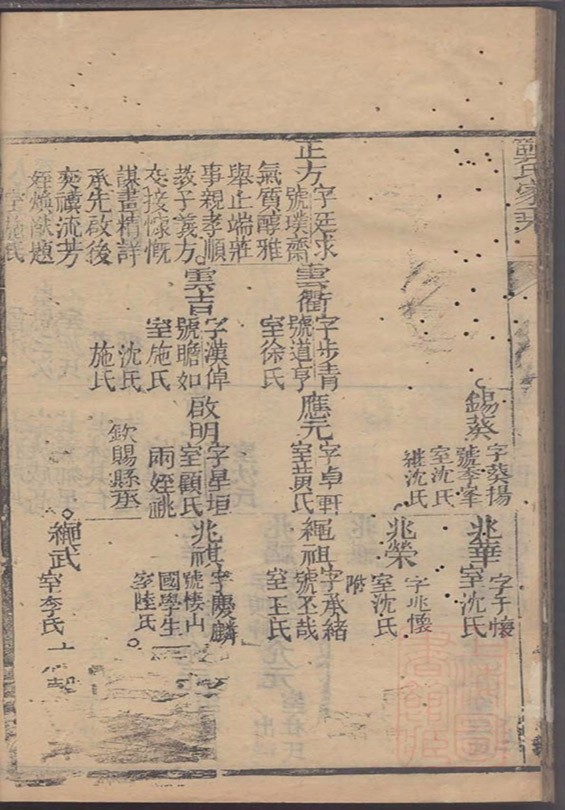 錫葵
字葵揚
號季峯
室沈氏
繼沈氏
兆華
字子懷
室沈氏
兆榮
字兆懷
室沈氏
附
正方
字廷求
號璞齋
氣質醇雅
舉止端莊
事親孝順
教子義方
交接慷慨
謀畫精詳
承先啟後
奕禩流芳
姪煥猷題
室施氏
雲衢
字步青
號道亨
室徐氏
應元
字卓軒
室黃氏
繩祖
字承緒
號丕哉
室王氏
雲吉
字漢倬
號瞻如
室施氏
沈氏
施氏
啟明
字星垣
室顧氏
兩姪祧
欽賜縣丞
兆祺
字賜麟
號棲山
國學生
室陸氏
繩武
室李氏